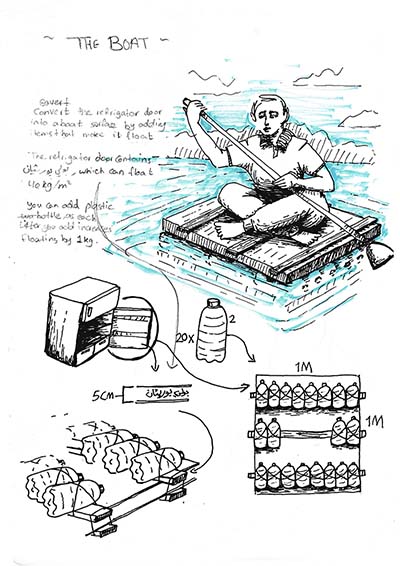 ~ THE BOAT ~
Convert the refrigator door
into a boat surface by adding
items that make it float
"The refrigator door contains
بولي يوريثان, which can float
40 kg/m³
You can add plastic
bottle, as each
liter you add increases
floating by 1kg.
20x
2
1M
5CM
بولي يوريثان
1M